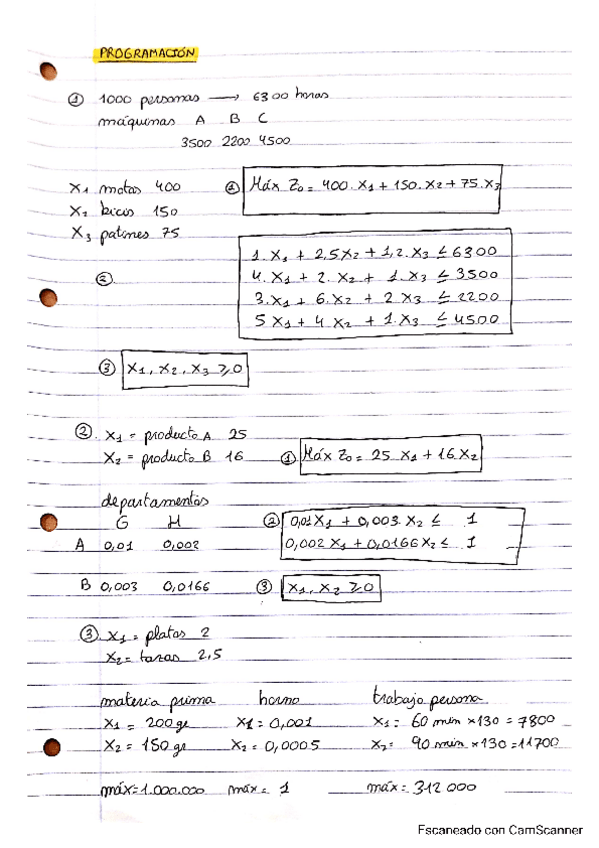 PROGRAMACIÓN
① 1000 personas → 6300 horas
máquinas A B C
3500 2200 4500
X1 motos 400 ① Máx Z0 = 400·X1 + 150·X2 + 75·X3
X2 bicis 150
X3 patines 75
1·X1 + 2,5X2 + 1,2·X3 ≤ 6300
② 4·X1 + 2·X2 + 1·X3 ≤ 3500
3·X1 + 6·X2 + 2 X3 ≤ 2200
5 X1 + 4 X2 + 1·X3 ≤ 4500
③ X1, X2, X3 ≥ 0
②. X1 = producto A 25
X2 = producto B 16 ① Máx Z0 = 25 X1 + 16·X2
departamentos
G H ② 0,01X1 + 0,003·X2 ≤ 1
A 0,01 0,002 0,002 X1 + 0,0166X2 ≤ 1
B 0,003 0,0166 ③ X1, X2 ≥ 0
③. X1 = platos 2
X2 = tazas 2,5
materia prima horno trabajo persona
X1 = 200gr X1 = 0,001 X1 = 60 min ×130 = 7800
X2 = 150gr X2 = 0,0005 X2 = 90 min ×130 = 11700
máx = 1.000.000 máx = 1 máx = 312 000
Escaneado con CamScanner